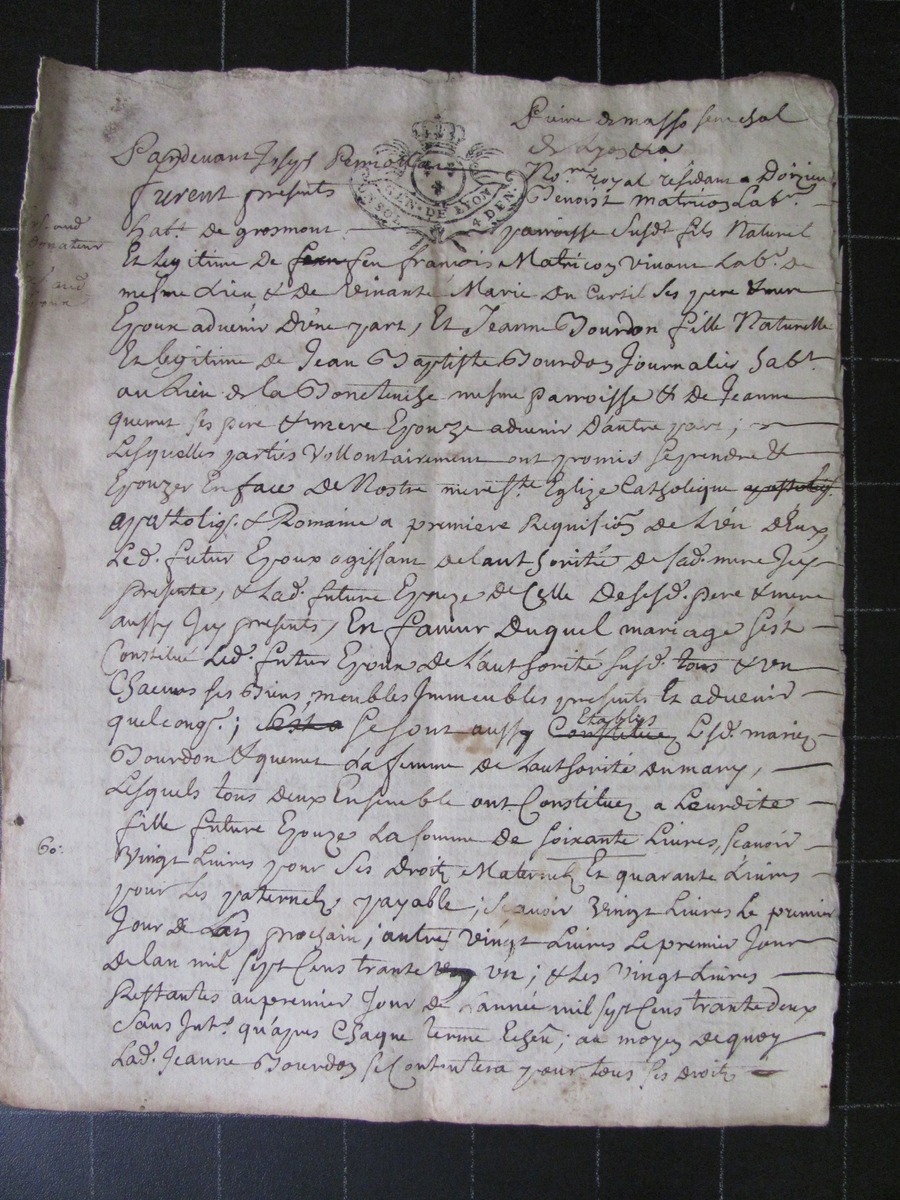 Pardevant Joseph
No.re royal résidant a Doizieu
furent présents Benoist matricon Lab.r
hab.t de grosmont parroisse susd.e fils Naturel
Et legitime de feu francois Matricon Vivant Lab.r de
mesme Lieu & de Vivante Marie Du Curtil ses pere & mere
Epoux advenir D'une part, Et Jeanne Bourdon fille Naturelle
Et legitime de Jean Baptiste Bourdon Journalier hab.t
au Lieu de la mesme parroisse & de Jeanne
quemet ses pere & mere Epouze advenir D'autre part,
Lesquelles parties Vollontairement ont promis se prendre &
Epouzer En face De Nostre mere s.te Eglize Catholique
apostoliq. & Romaine a premiere Requision de L'un D'Eux
Led. futur Epoux agissant de l'authorité de sad. mere Icy
presente, & Lad. future Epouze de Celle De sesd. pere & mere
aussy Icy presents, En faveur Duquel mariage s'est
Constitué Led. futur Epoux De L'authorité susd. tous & un
Chacuns ses Biens meubles Immeubles presents Et advenir
quelconq.; se sont aussy Establys Lesd. mariez
Bourdon & quemet La femme de L'authorité du mary,
Lesquels tous deux Ensemble ont Constituez a Leurdite
fille future Epouze La somme de soixante Livres, scavoir
60:
Vingt Livres pour ses Droits Maternels Et quarante Livres
pour Les paternels payable; scavoir Vingt Livres Le premier
Jour de Lan prochain; autres Vingt Livres Le premier Jour
De lan mil sept Cens trante un; & Les Vingt Livres
Restantes au premier Jour de L'année mil sept Cens trante deux
sans Int.t qu'apres Chaque terme Echeu; au moyen Dequoy
Lad. Jeanne Bourdon se Contentera pour tous ses droits
GEN. DE LYON
4 DEN.